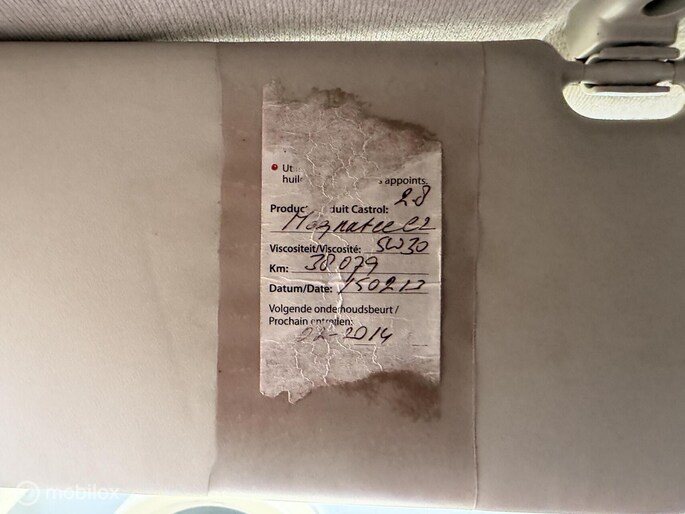 Ut
huil s appoints.
28
Produc duit Castrol:
Magnatec C2
Viscositeit/Viscosité: 5W30
Km: 38079
Datum/Date: 150213
Volgende onderhoudsbeurt /
Prochain entretien:
02-2014
mobilox